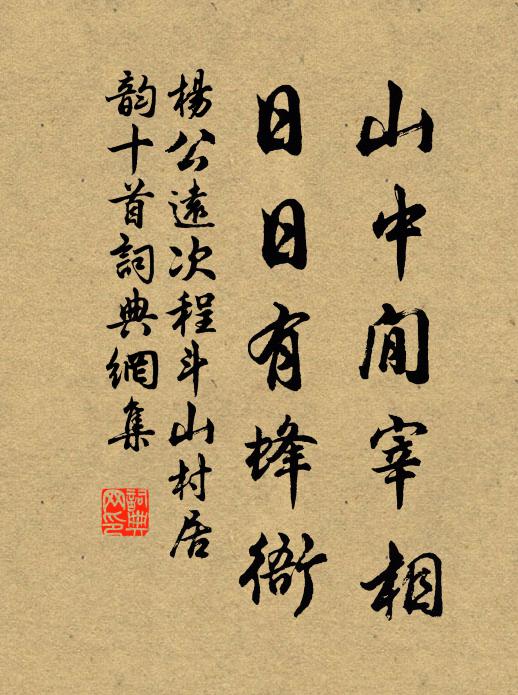 山中閒宰相
日日有蜂衙
楊公遠次程斗山村居
韵十首詞典網集
詞典网印